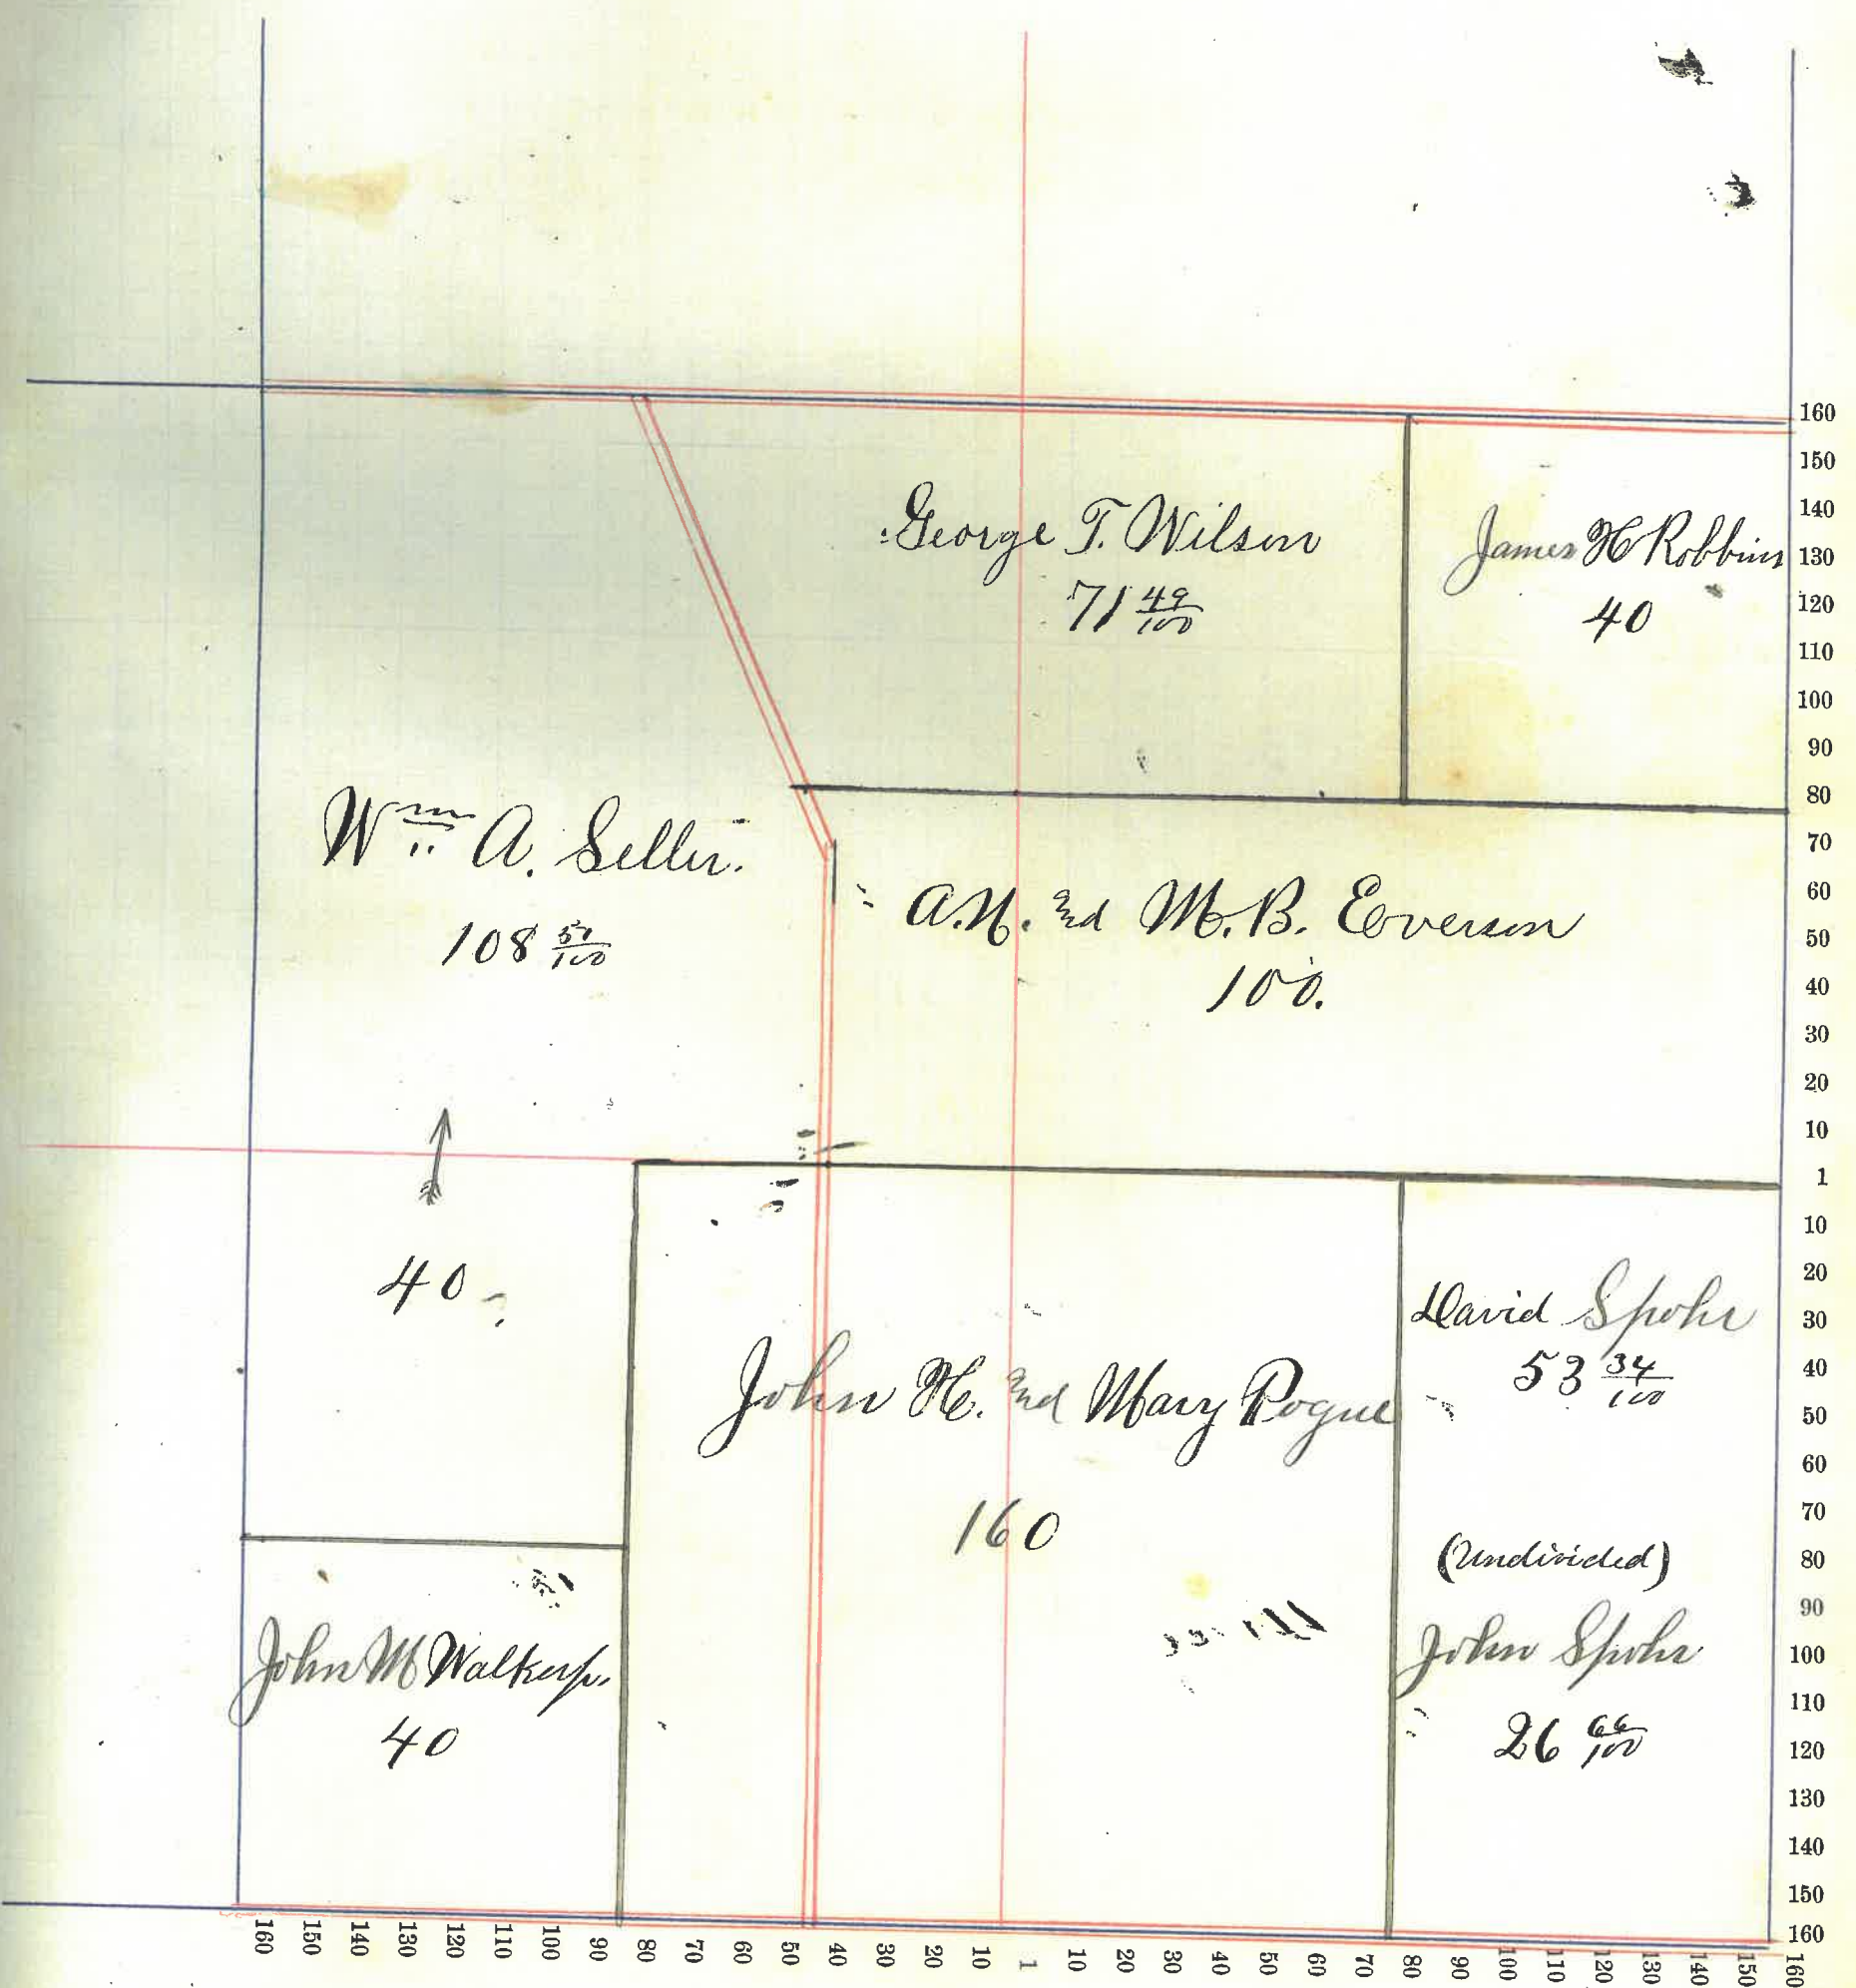 George T. Wilson
71 49/100
James H Robbins
40
Wm A. Seller.
108 51/100
A.N. and M.B. Everson
100.
40
John H. and Mary Pogue
160
David Spohr
53 34/100
(Undivided)
John Spohr
26 66/100
John M Walker
40
160
150
140
130
120
110
100
90
80
70
60
50
40
30
20
10
1
10
20
30
40
50
60
70
80
90
100
110
120
130
140
150
160
160 150 140 130 120 110 100 90 80 70 60 50 40 30 20 10 1 10 20 30 40 50 60 70 80 90 100 110 120 130 140 150 160